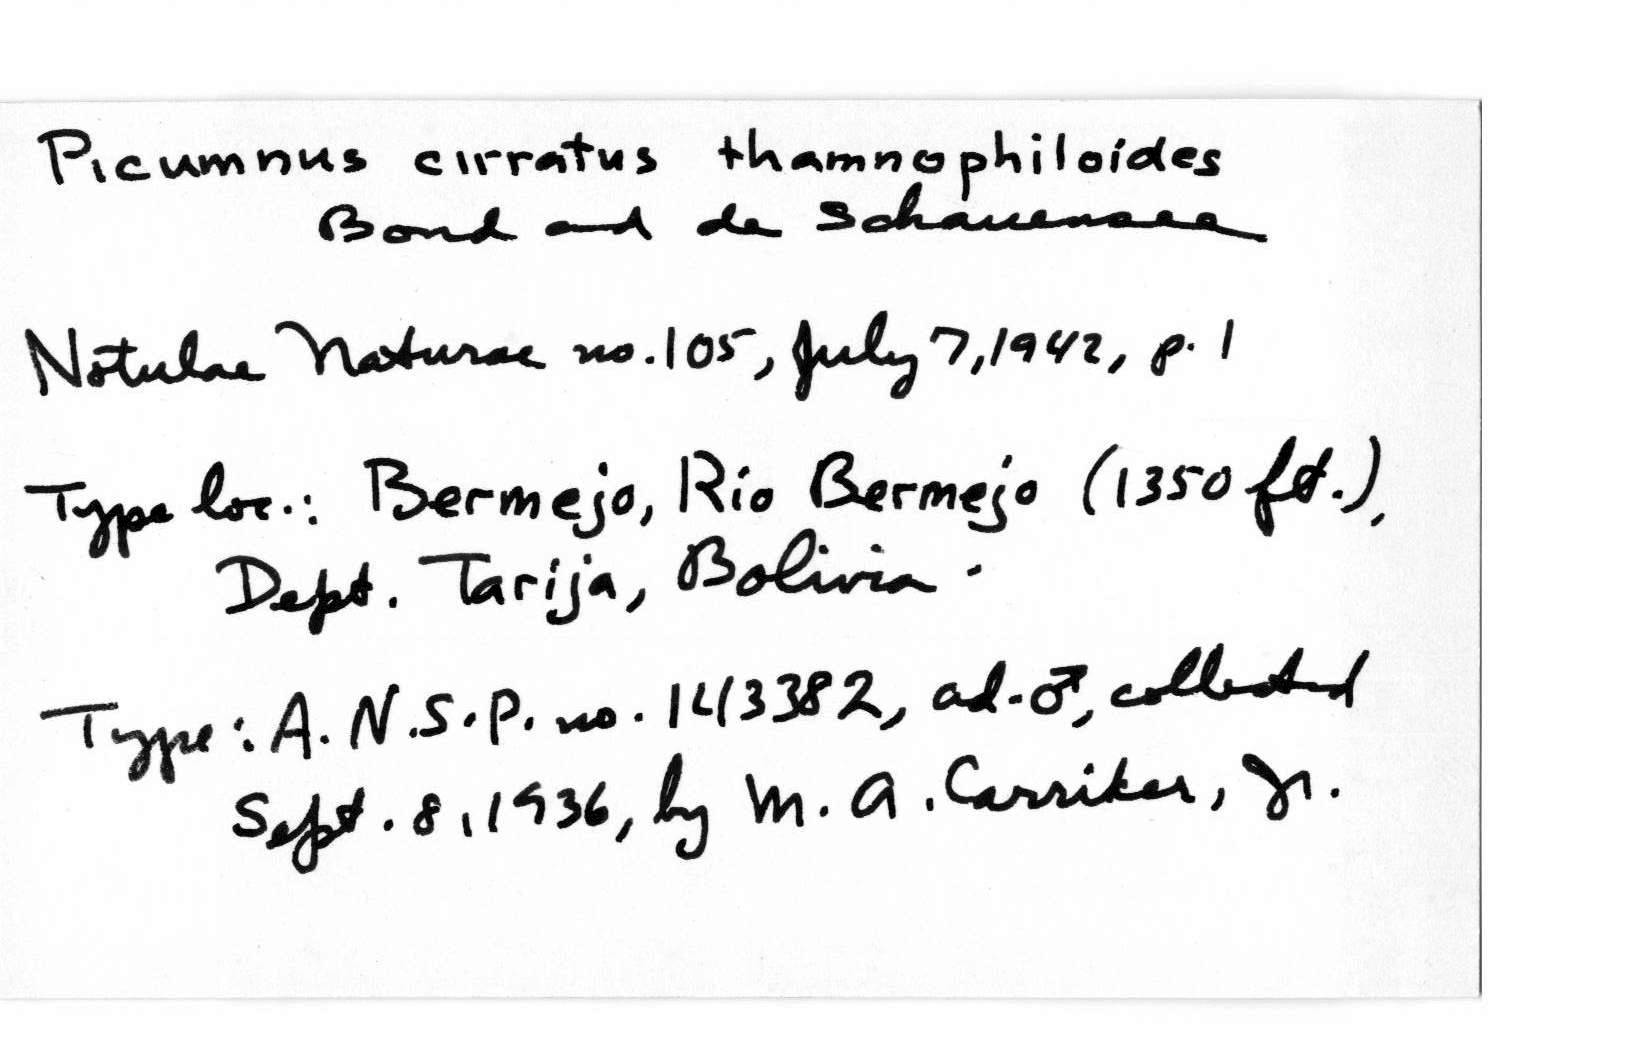 Picumnus cirratus thamnophiloides
Bond and de Schauensee
Notulae Naturae no. 105, July 7, 1942, p. 1
Type loc.: Bermejo, Río Bermejo (1350 ft.),
Dept. Tarija, Bolivia.
Type: A.N.S.P. no. 143382, ad. ♂, collected
Sept. 8, 1936, by M. A. Carriker, Jr.